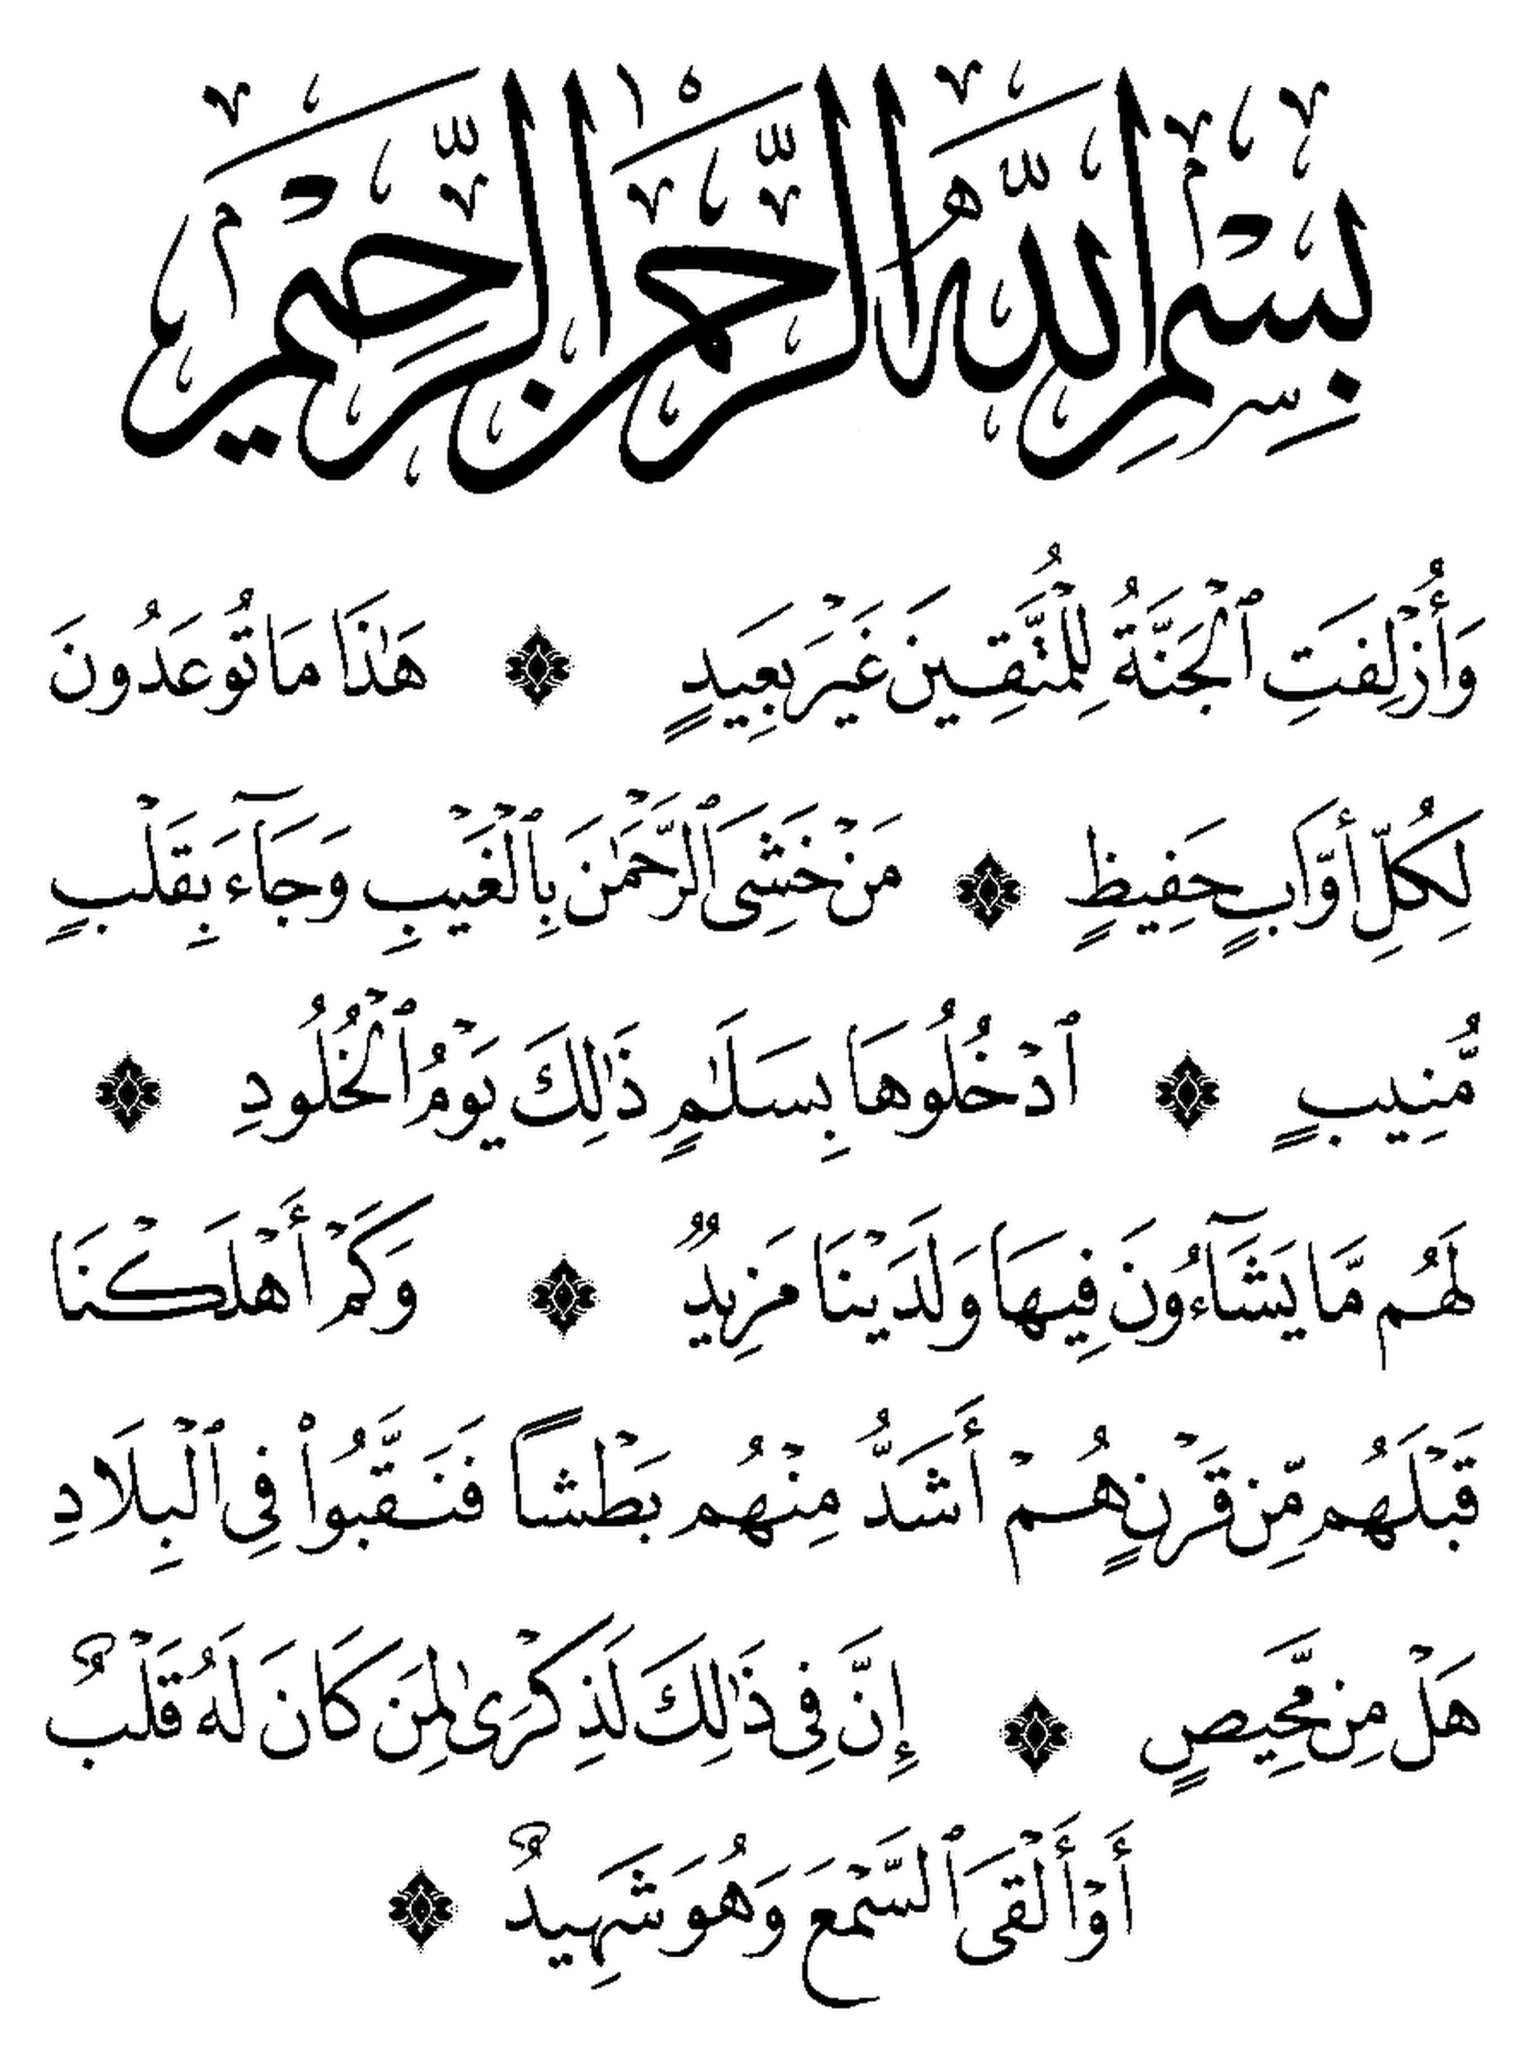 بِسْمِ اللَّهِ الرَّحْمَنِ الرَّحِيمِ
وَأُزْلِفَتِ ٱلْجَنَّةُ لِلْمُتَّقِينَ غَيْرَ بَعِيدٍ ۞ هَٰذَا مَا تُوعَدُونَ
لِكُلِّ أَوَّابٍ حَفِيظٍ ۞ مَنْ خَشِىَ ٱلرَّحْمَٰنَ بِٱلْغَيْبِ وَجَآءَ بِقَلْبٍ
مُّنِيبٍ ۞ ٱدْخُلُوهَا بِسَلَٰمٍ ذَٰلِكَ يَوْمُ ٱلْخُلُودِ ۞
لَهُم مَّا يَشَآءُونَ فِيهَا وَلَدَيْنَا مَزِيدٌ ۞ وَكَمْ أَهْلَكْنَا
قَبْلَهُم مِّن قَرْنٍ هُمْ أَشَدُّ مِنْهُم بَطْشًا فَنَقَّبُوا۟ فِى ٱلْبِلَادِ
هَلْ مِن مَّحِيصٍ ۞ إِنَّ فِى ذَٰلِكَ لَذِكْرَىٰ لِمَن كَانَ لَهُۥ قَلْبٌ
أَوْ أَلْقَى ٱلسَّمْعَ وَهُوَ شَهِيدٌ ۞